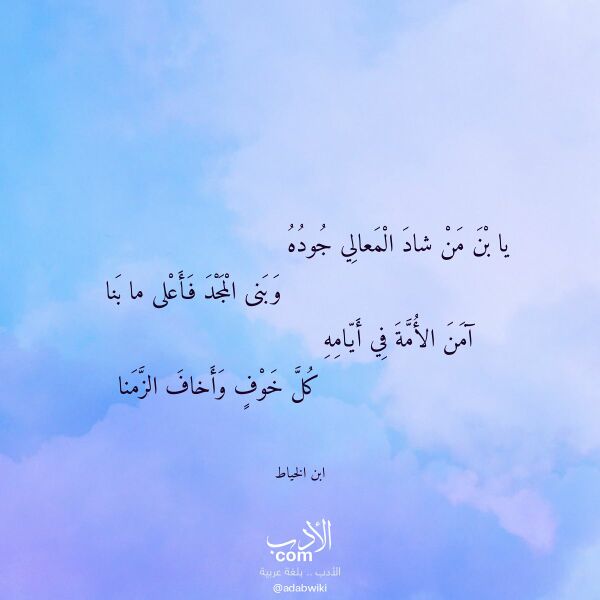 يا بْنَ مَنْ شادَ الْمَعالِي جُودُهُ
وَبَنى الْمَجْدَ فَأَعْلى ما بَنا
آمَنَ الأُمَّةَ فِي أَيّامِهِ
كُلَّ خَوْفٍ وَأَخافَ الزَّمَنا
ابن الخياط
الأدب
com
الأدب .. بلغة عربية
@adabwiki